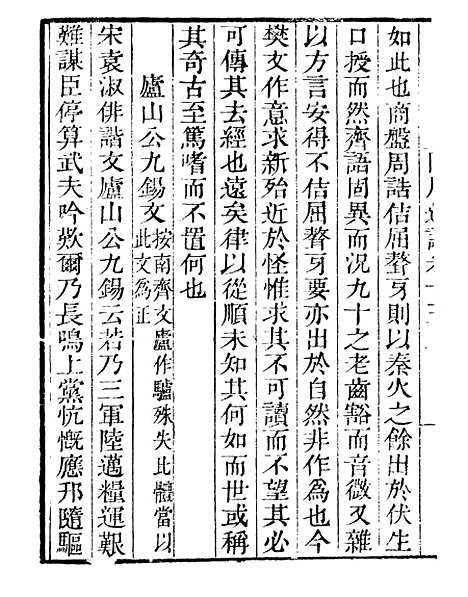 如此也商盤周誥佶屈聱牙則以秦火之餘出於伏生
口授而然齊語固異而況九十之老齒豁而音微又雜
以方言安得不佶屈聱牙要亦出於自然非作為也今
樊文作意求新殆近於怪惟求其不可讀而不望其必
可傳其去經也遠矣律以從順未知其何如而世或稱
其奇古至篤嗜而不置何也
廬山公九錫文按南齊文廬作驢殊失此體當以
此文為正
宋袁淑俳諧文廬山公九錫云若乃三軍陸邁糧運艱
難謀臣停算武夫吟歎爾乃長鳴上黨忼慨應邦隨驅